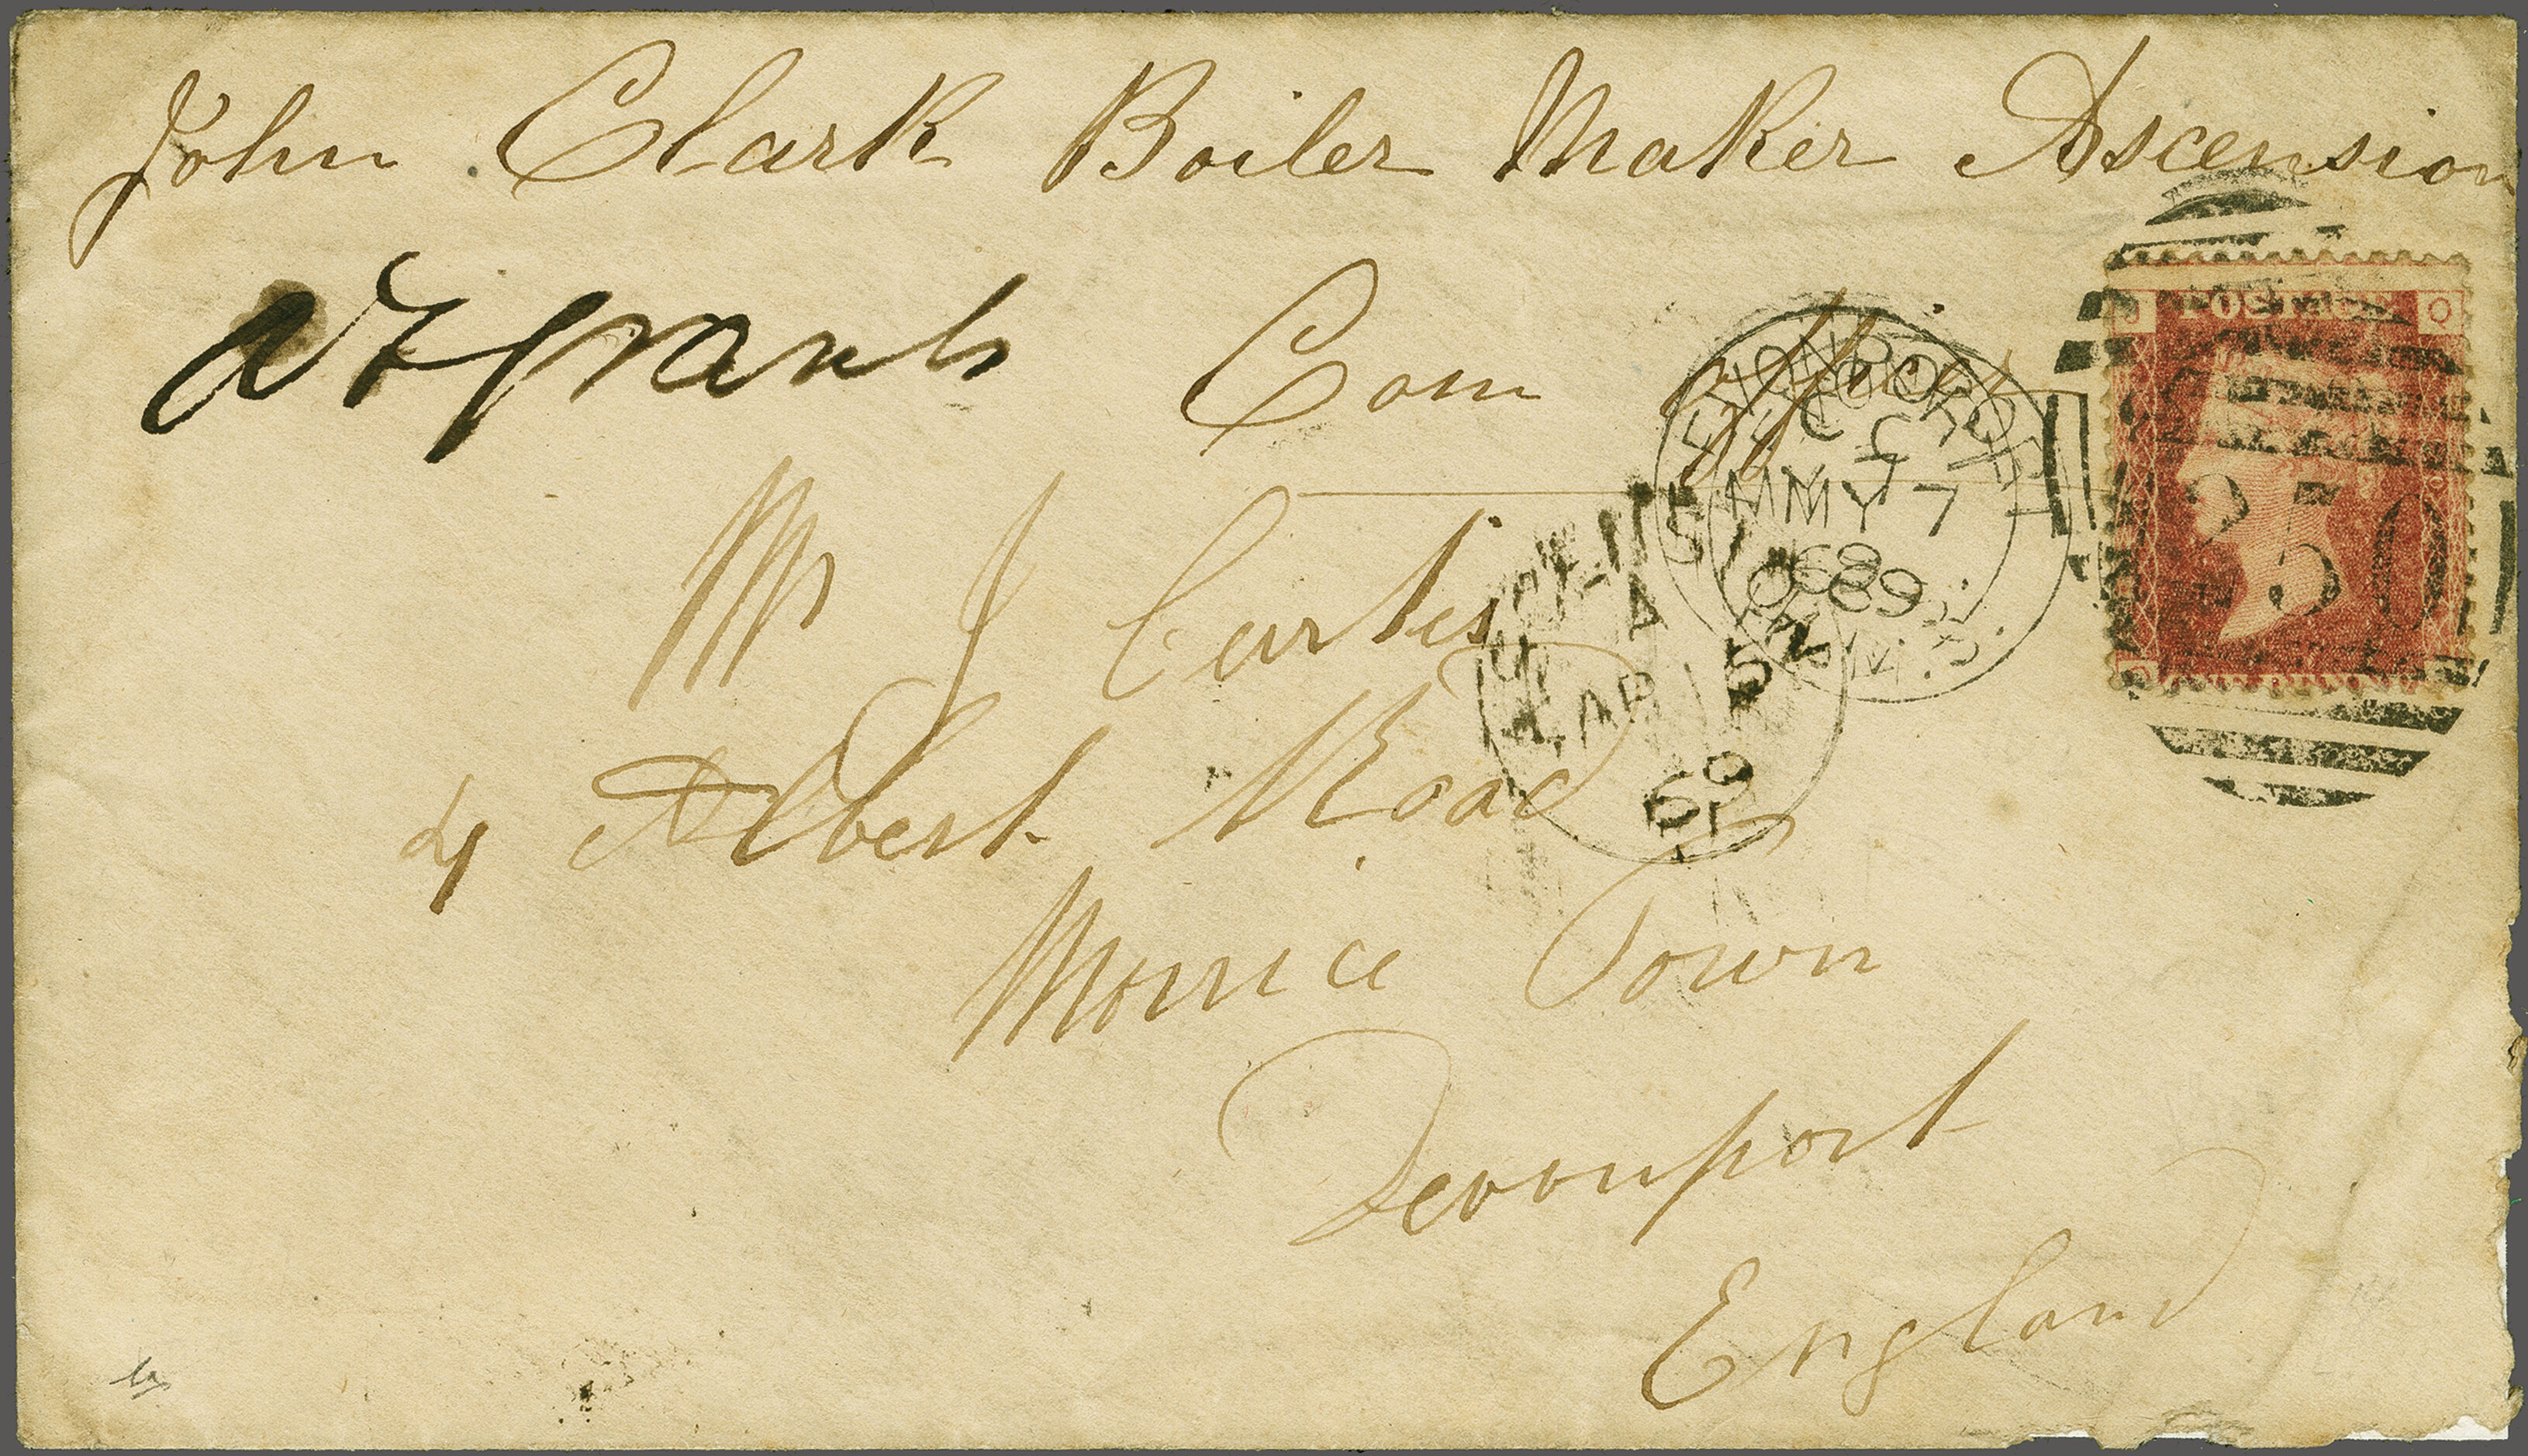 John Clark Boiler Maker Ascension
Com officer
Mr J Curtis
4 Albert Road
Morrice Town
Devonport
England
DEVONPORT
MY 7
69
A
AP 15
69
POSTAGE
Q
250